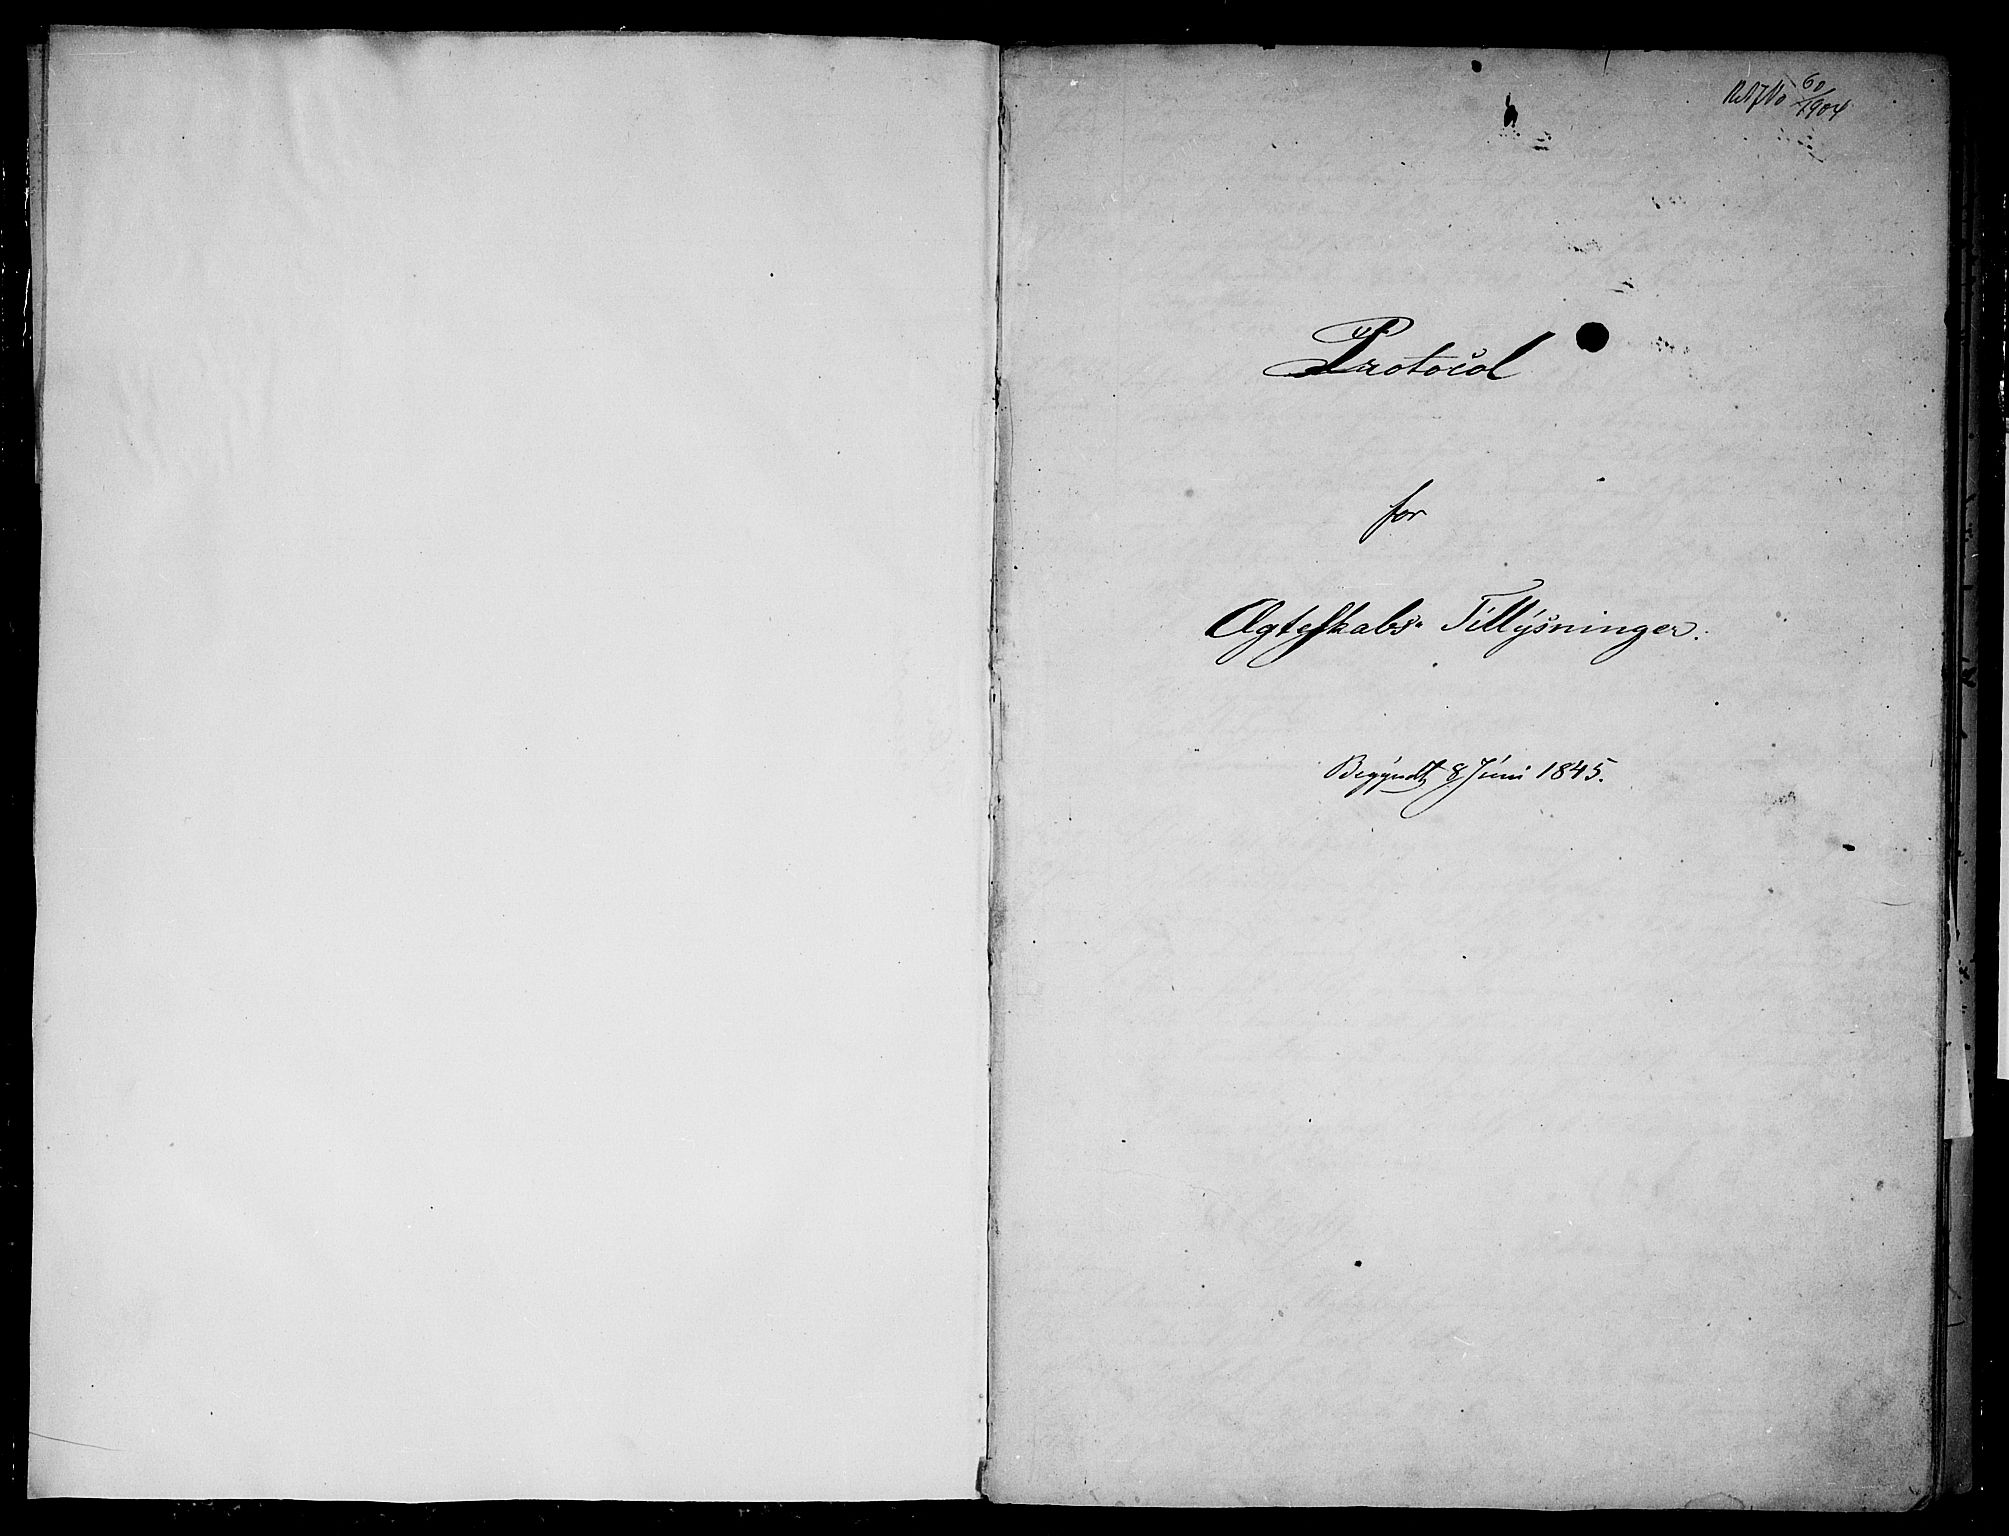 60/1904
Protocol
for
Ægteskabs- Tillysninger.
Begyndt 8 Juni 1845.